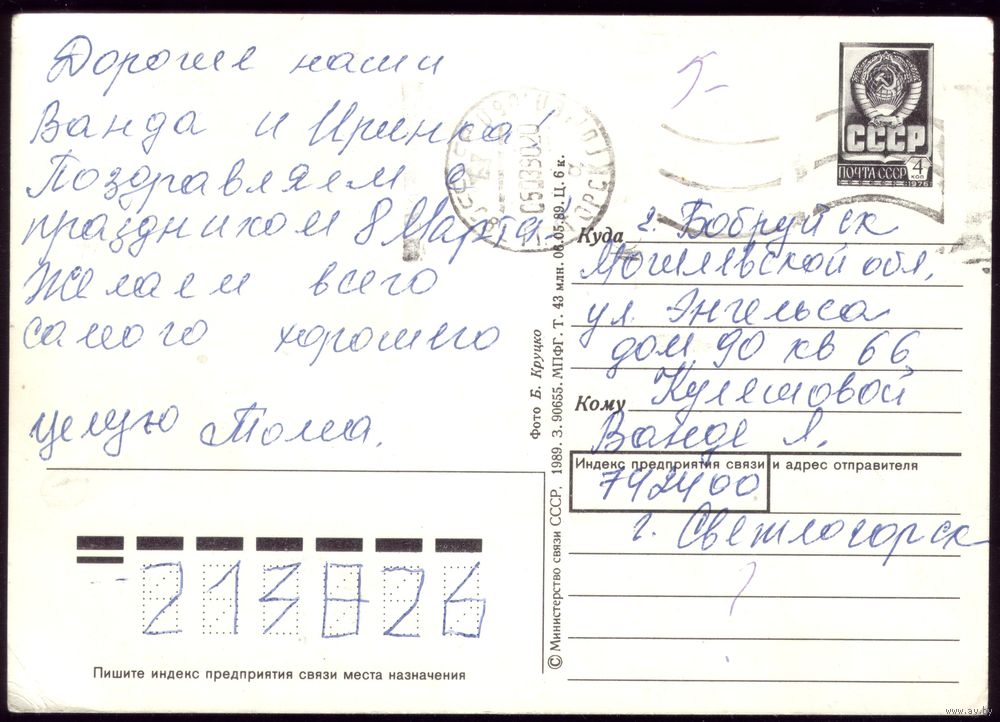 Дорогие наши
Ванда и Иринка!
Поздравляем с
праздником 8 Марта!
Желаем всего
самого хорошего
целую Тома.
СССР
4 коп
ПОЧТА СССР
1976
Куда г. Бобруйск
Могилевской обл.
ул. Энгельса
дом 90 кв 66
Кому Кулешовой
Ванде Я.
Индекс предприятия связи и адрес отправителя
742400
г. Светлогорск
213826
Пишите индекс предприятия связи места назначения
Фото Б. Круцко
© Министерство связи СССР, 1989. З. 90655. МПФГ. Т. 43 млн. 06.05.89. Ц. 6 к.
www.ay.by